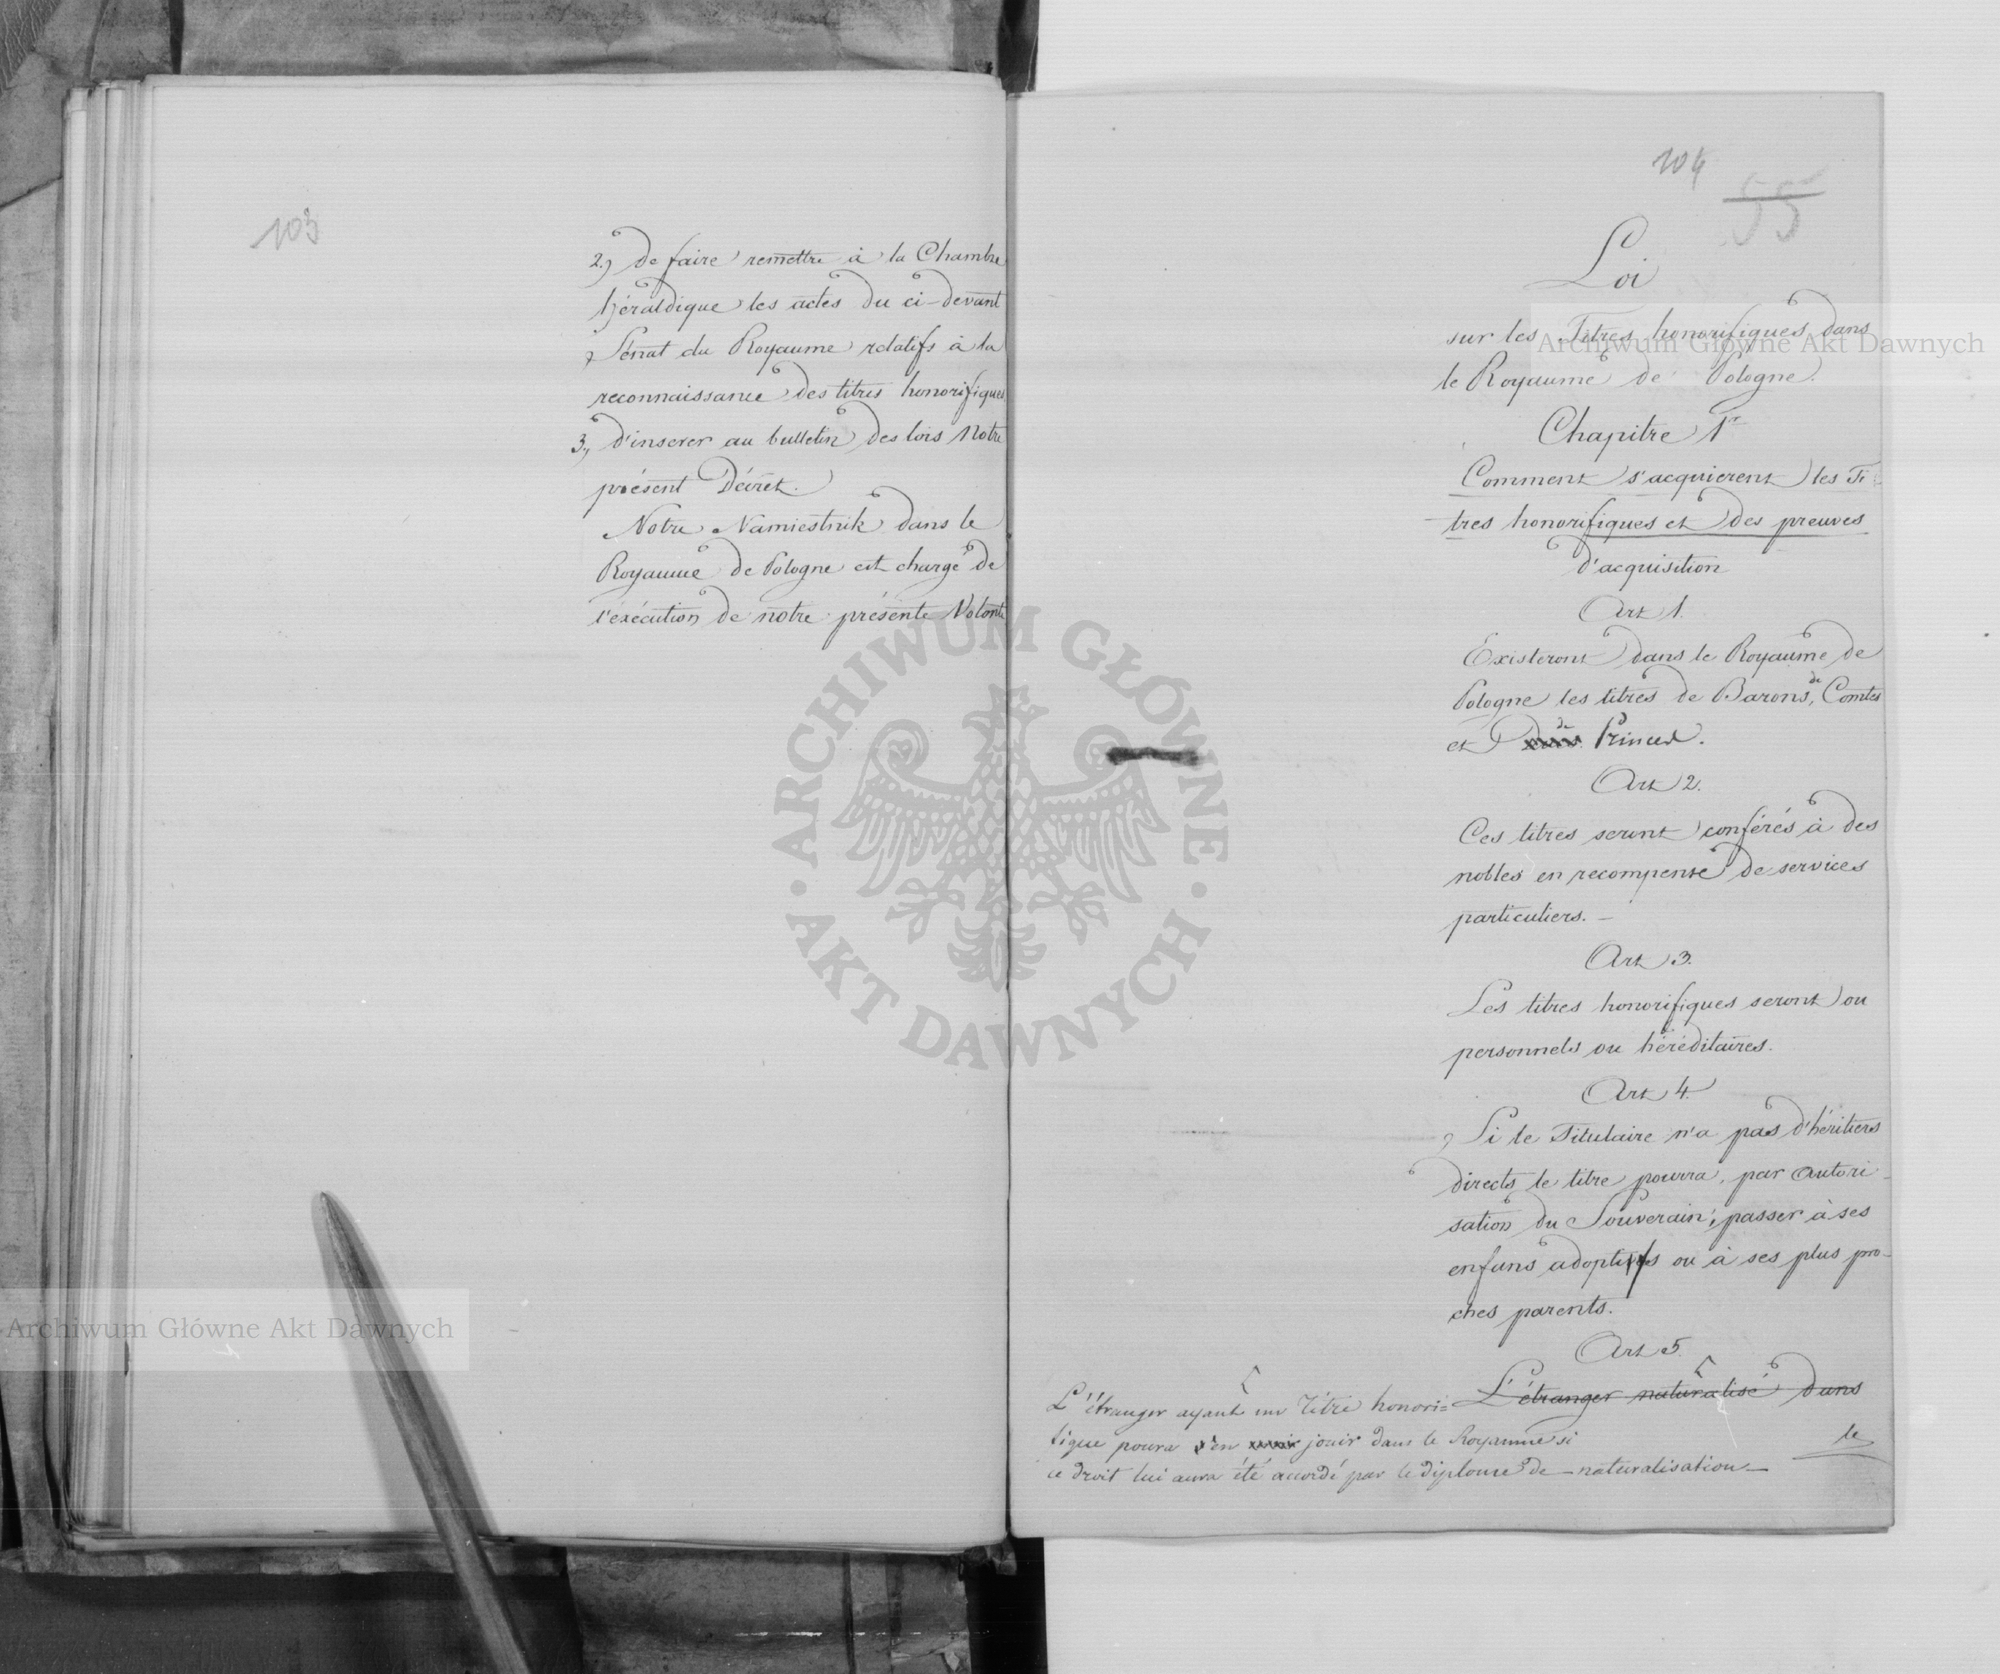 103
2.) de faire remettre à la Chambre
héraldique les actes du ci-devant
Sénat du Royaume relatifs à la
reconnaissance des titres honorifiques
3.) d'inserer au bulletin des lois Notre
présent Décret.
Notre Namiestnik dans le
Royaume de Pologne est chargé de
l'exécution de notre présente Volonté
104
55
Loi
sur les Titres honorifiques dans
le Royaume de Pologne.
Chapitre 1r
Comment s'acquierent les Ti
tres honorifiques et des preuves
d'acquisition
Art 1.
Existeront dans le Royaume de
Pologne les titres de Barons, de Comtes
et de Princes.
Art 2.
Ces titres seront conférés à des
nobles en recompense de services
particuliers. —
Art 3.
Les titres honorifiques seront ou
personnels ou héréditaires.
Art 4.
Si le Titulaire n'a pas d'héritiers
directs, le titre pourra, par autori-
sation du Souverain, passer à ses
enfans adoptifs ou à ses plus pro-
ches parents.
Art 5.
L'étranger naturalisé dans
le
L'étranger ayant un Titre honori=
fique poura en jouir dans le Royaume si
ce droit lui aura été accordé par le diplome de naturalisation
Archiwum Główne Akt Dawnych
Archiwum Główne Akt Dawnych
ARCHIWUM GŁÓWNE
AKT DAWNYCH